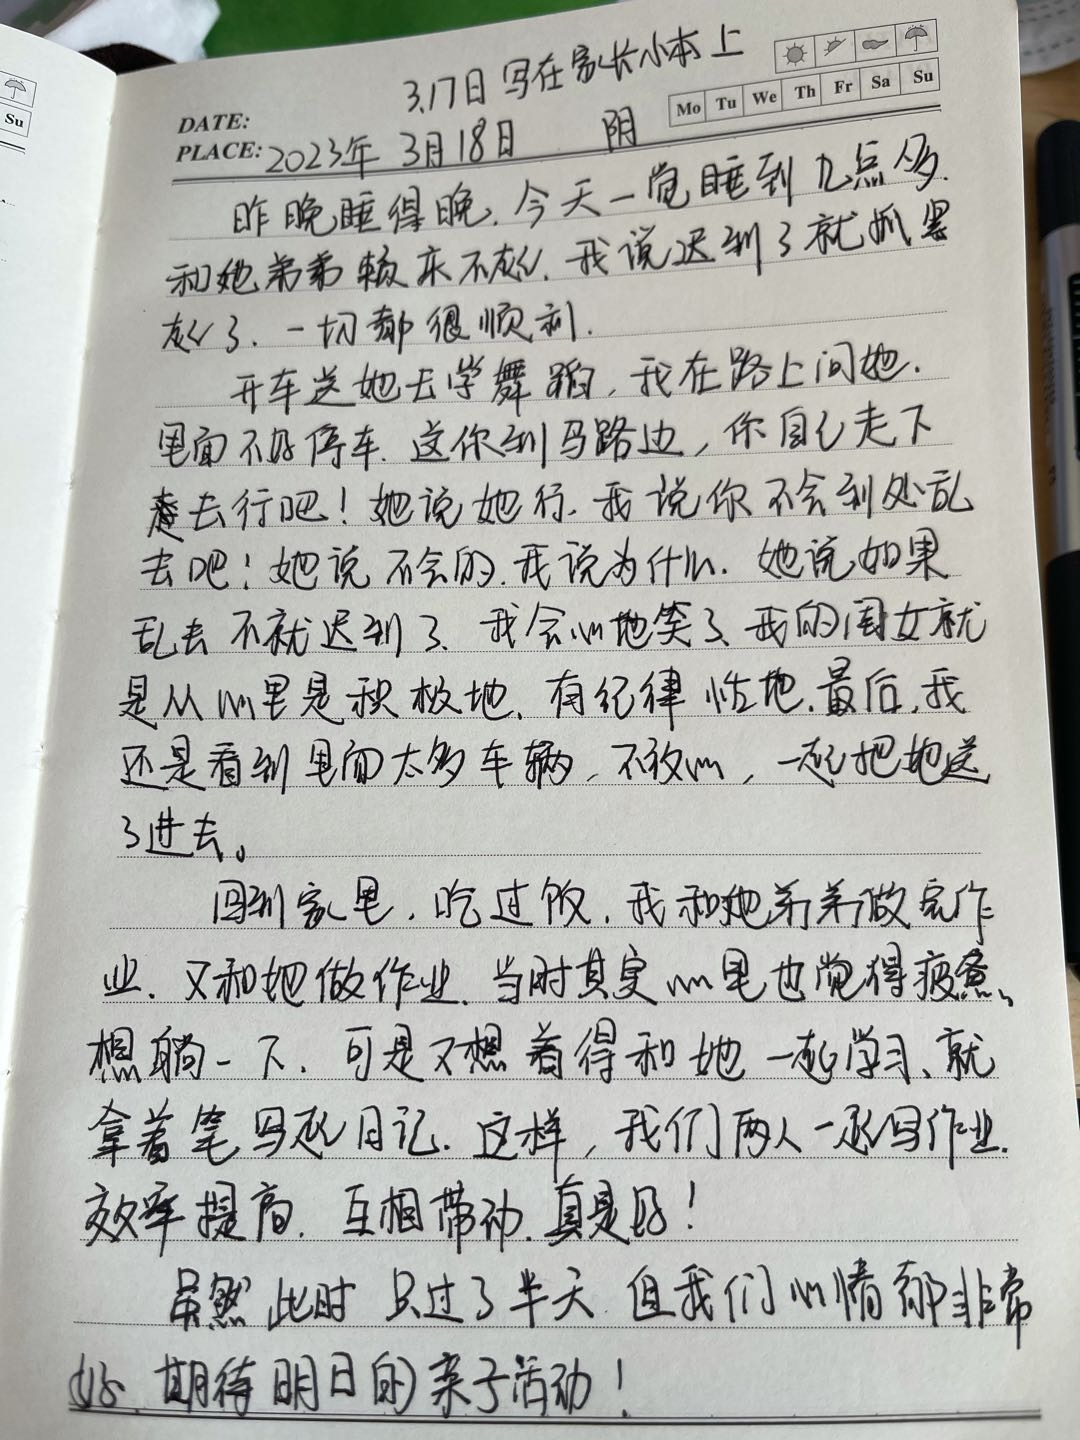 Su
3.17日写在家长小本上
Mo Tu We Th Fr Sa Su
DATE:
PLACE: 2023年 3月18日 阴
昨晚睡得晚.今天一觉睡到九点多.
和她弟弟赖床不起.我说迟到了就抓黑
起了.一切都很顺利.
开车送她去学舞蹈,我在路上问她.
里面不好停车.送你到马路边,你自己走下
去行吧!她说她行.我说你不会到处乱
去吧!她说不会的.我说为什么.她说如果
乱去不就迟到了.我会心地笑了.我的闺女就
是从心里是积极地、有纪律性地.最后,我
还是看到里面太多车辆,不放心,一起把她送
了进去。
回到家里,吃过饭,我和她弟弟做完作
业.又和她做作业.当时其实心里也觉得疲惫、
想躺一下.可是又想着得和她一起学习、就
拿着笔写起日记.这样,我们两人一起写作业.
效率提高.互相带动.真是好!
虽然此时只过了半天.但我们心情都非常
好.期待明日的亲子活动!